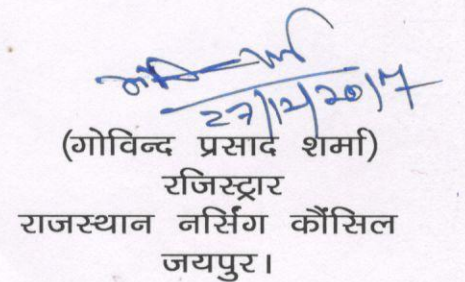 27/12/2017
(गोविन्द प्रसाद शर्मा)
रजिस्ट्रार
राजस्थान नर्सिंग कौंसिल
जयपुर।